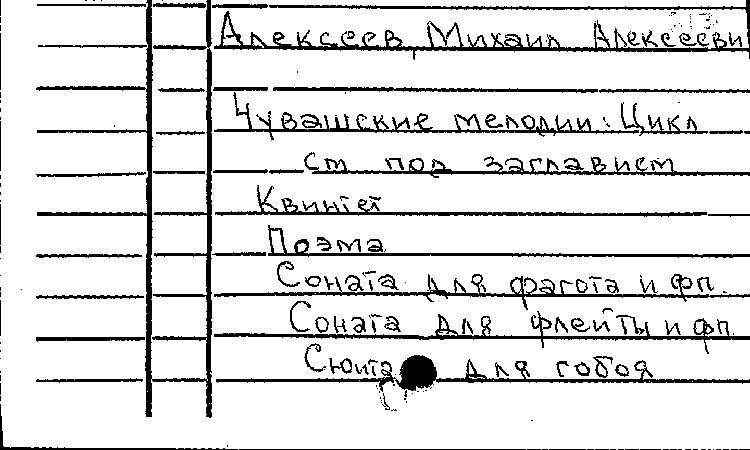 Алексеев, Михаил Алексееви
Чувашские мелодии: Цикл
см под заглавием
Квинтет
Поэма
Соната для фагота и фп.
Соната для флейты и фп
Сюита для гобоя